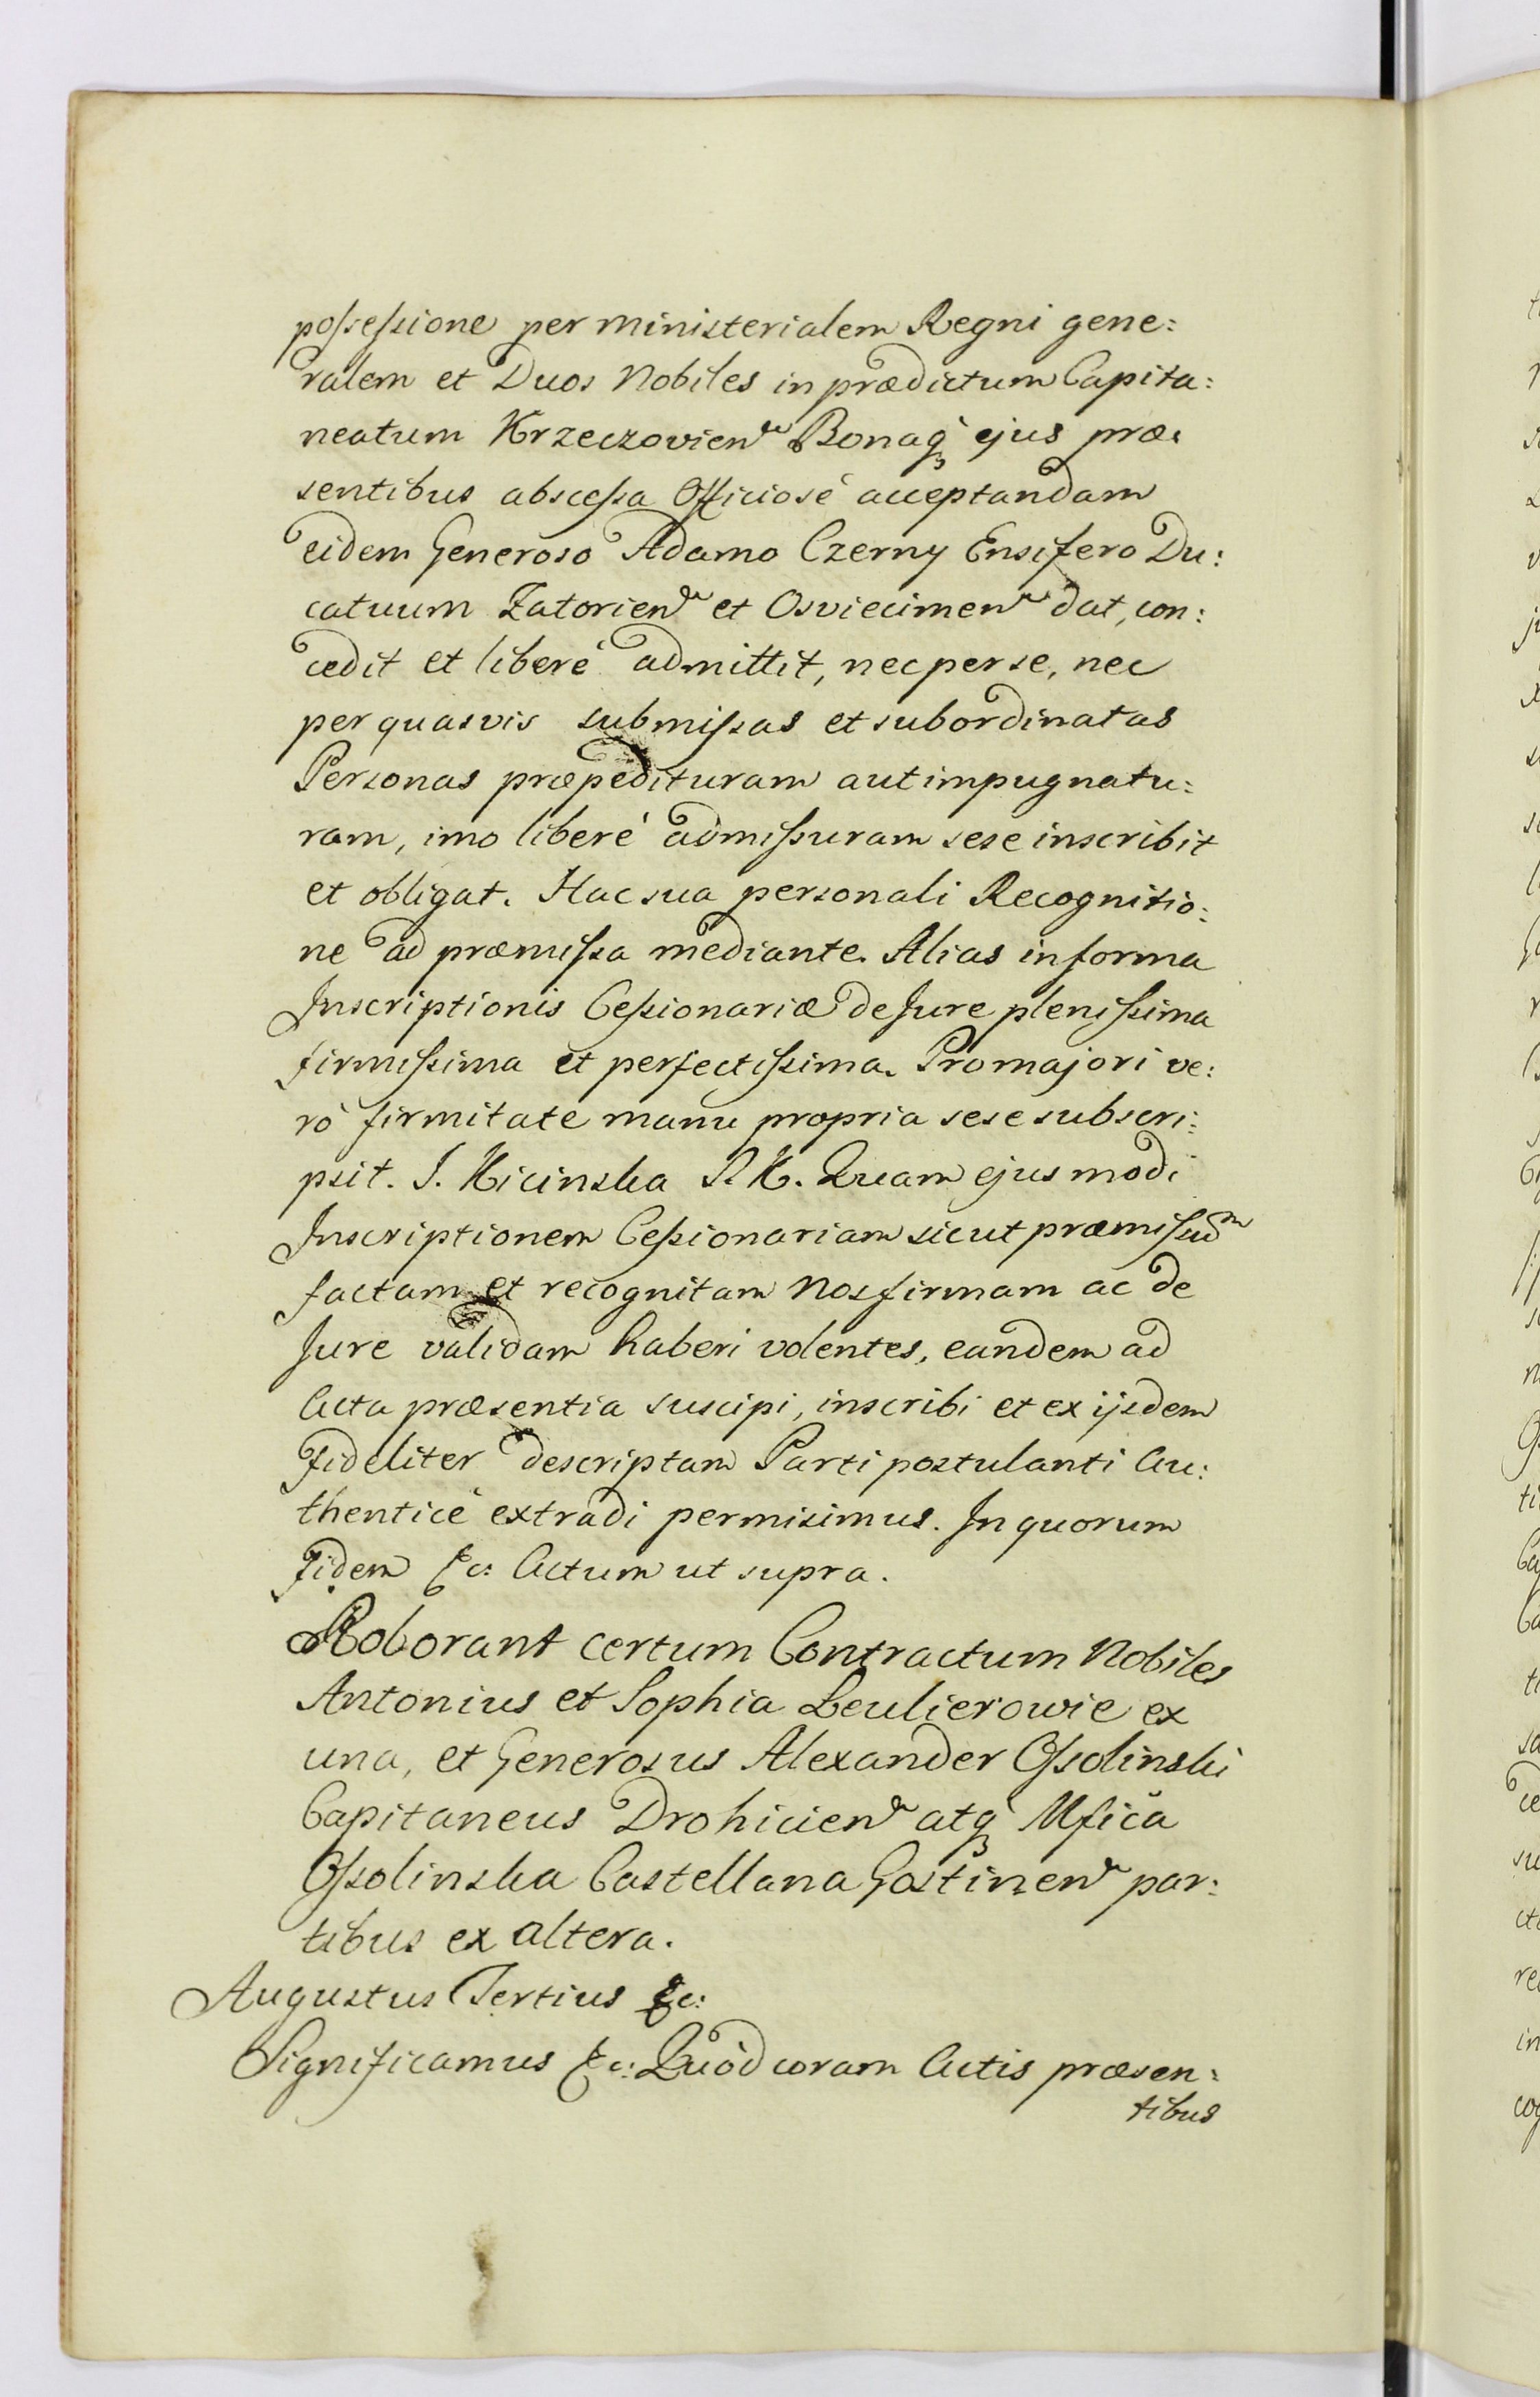 possessione per ministerialem Regni gene:
ralem et Duos Nobiles in prædictum Capita:
neatum Krzeczovien Bonaq́ ejus præ:
sentibus abscessa Officiosè acceptandam
eidem Generoso Adamo Czerny Ensifero Du:
catuum Zatorien et Osviecimen dat, con:
cedit et liberè admittit, nec per se, nec
per quasvis submissas et subordinatas
Personas præpedituram aut impugnatu:
ram, imo liberè admissuram sese inscribit
et obligat. Hac sua personali Recognitio:
ne ad præmissa mediante. Alias in forma
Inscriptionis Cessionariæ de Jure plenissima
firmissima et perfectissima. Pro majori ve:
rò firmitate manu propria sese subscri:
psit. J. Kicinska S. K. Quam ejusmodi
Inscriptionem Cessionariam sicut præmissum
factam et recognitam Nos firmam ac de
Jure validam haberi volentes, eandem ad
Acta præsentia suscipi, inscribi et ex ijsdem
fideliter descriptam Parti postulanti Au:
thenticè extradi permisimus. In quorum
fidem &c: Actum ut supra.
Roborant certum Contractum Nobiles
Antonius et Sophia Leulierowie ex
una, et Generosus Alexander Ossolinski
Capitaneus Drohicien atq́ Mfica
Ossolinska Castellana Gostinen par:
tibus ex altera.
Augustus Tertius &c:
Significamus &c: Quòd coram Actis præsen:
tibus